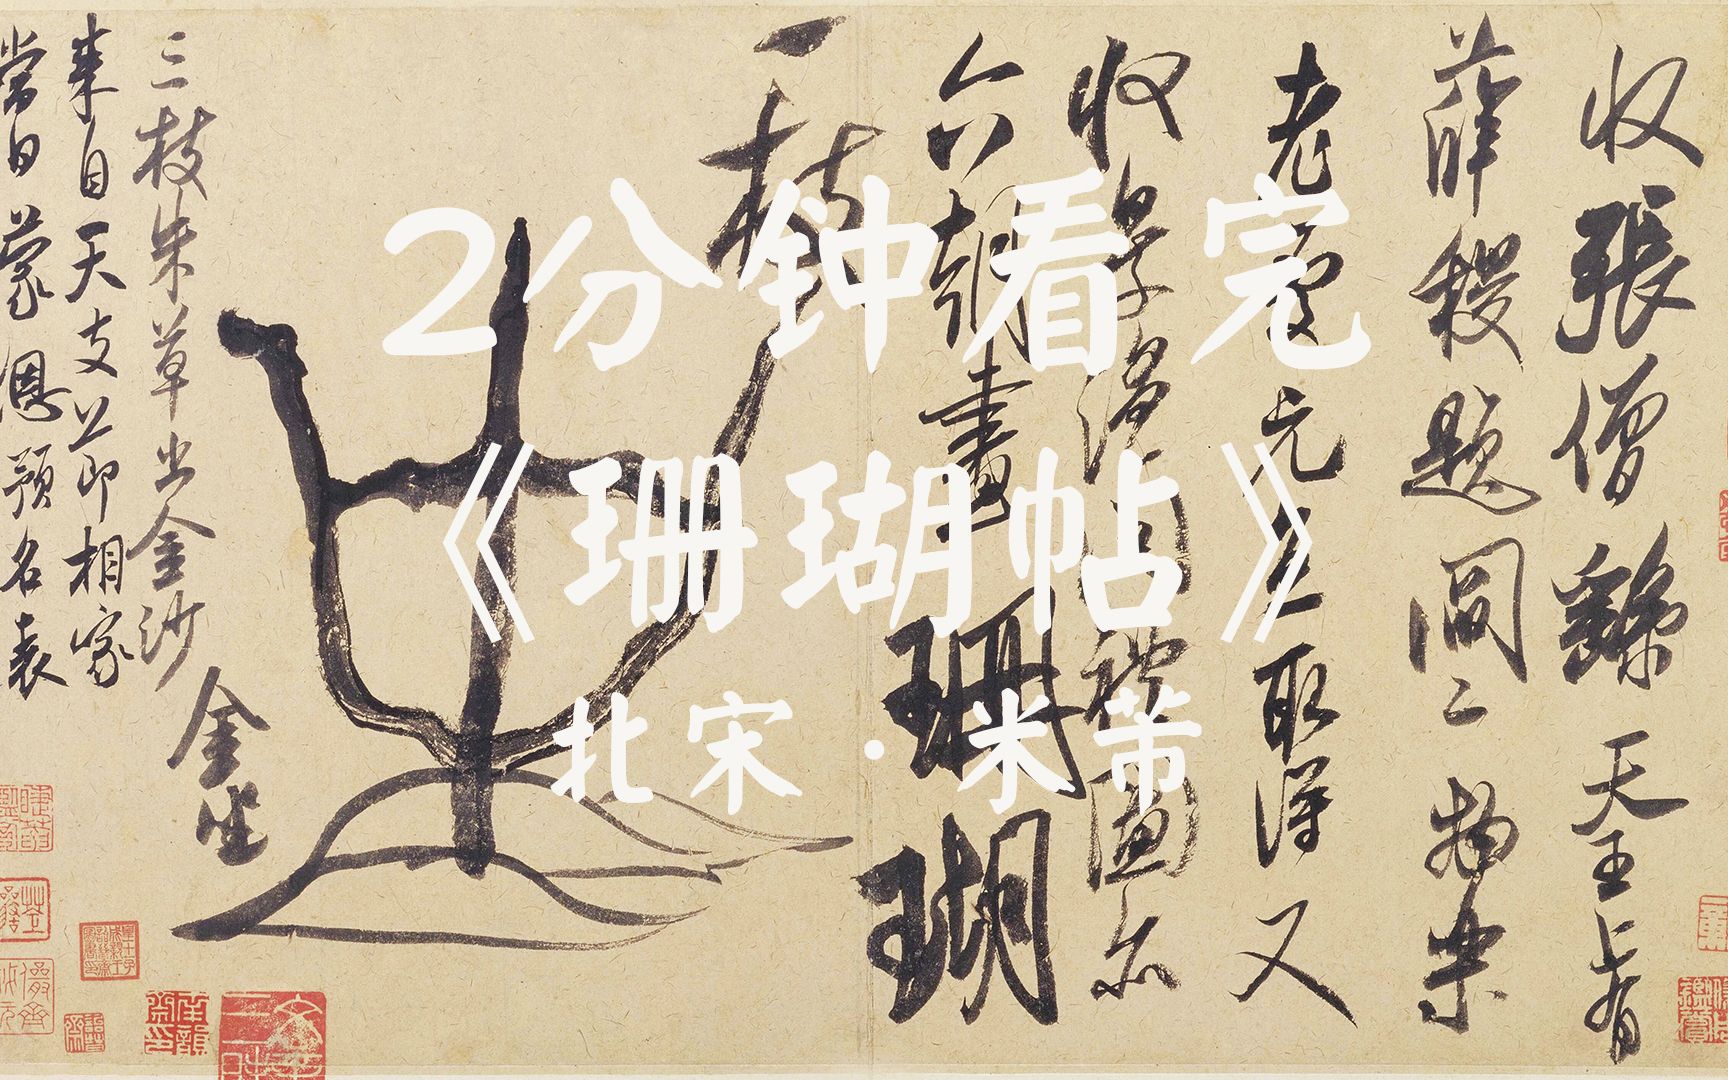 2分钟看完
《珊瑚帖》
北宋·米芾
收張僧繇天王上有
薛稷題閻二物樂
老處元直取得又
收景溫問禮圖亦
六朝畫珊瑚
一枝
金坐
三枝朱草出金沙
來自天支節相家
當日蒙恩預名表